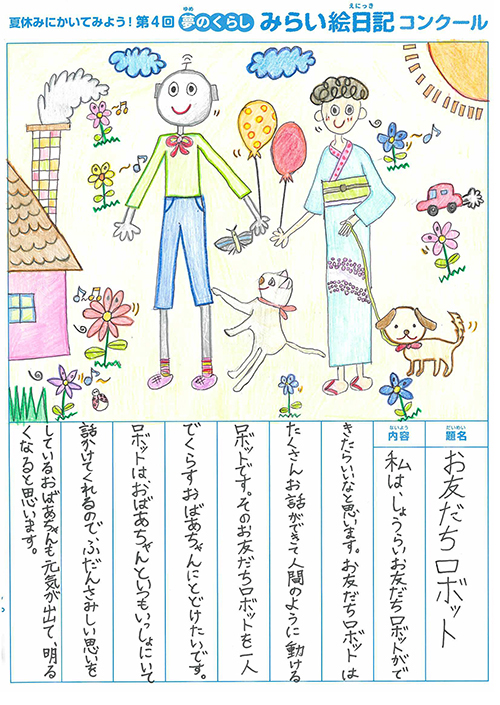 夏休みにかいてみよう！第4回 夢のくらし みらい絵日記 コンクール
ゆめ
えにっき
だいめい
題名
お友だちロボット
ないよう
内容
私は、しょうらいお友だちロボットがで
きたらいいなと思います。お友だちロボットは
たくさんお話ができて人間のように動ける
ロボットです。そのお友だちロボットを一人
でくらすおばあちゃんにとどけたいです。
ロボットは、おばあちゃんといつもいっしょにいて
話かけてくれるので、ふだんさみしい思いを
しているおばあちゃんも元気が出て、明る
くなると思います。